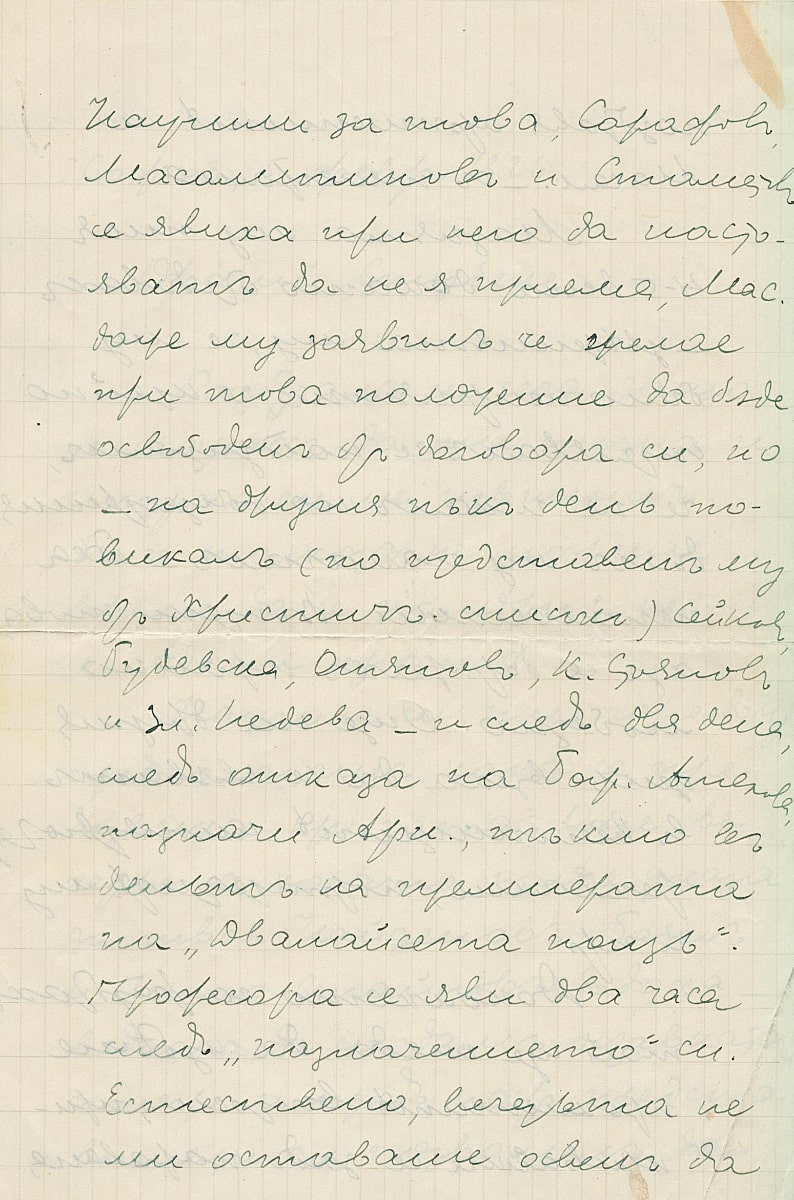 Научили за това, Сарафовъ,
Масалитиновъ и Стаматовъ
се явиха при него да насто-
яватъ да не я приема, Мас.
даже му заявилъ че желае
при това положение да бѫде
освободенъ отъ договора си, но
– на другия пъкъ день по-
викалъ (по представенъ му
отъ Христичъ. списъкъ)
Будевска, Огняновъ, К. Стояновъ
и Зл. Недева – и следъ два дена,
следъ отказа на Бор.
назначи Ари., тъкмо въ
деньтъ на премиерата
на „Дванайсета нощь“.
Професора се яви два часа
следъ „назначението“ си.
Естествено, вечерьта не
ми оставаше освенъ да